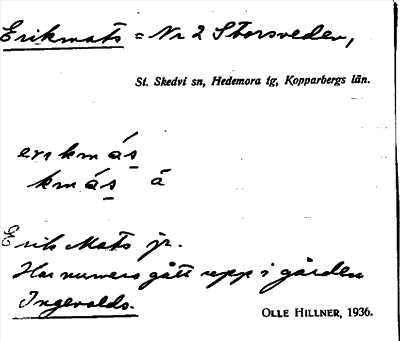 Erikmats = Nr 2 Storsveden,
St. Skedvi sn, Hedemora tg, Kopparbergs län.
erikmás
kmás å
Erik Mats jr.
Har numera gått upp i gården
Ingevalds.
OLLE HILLNER, 1936.